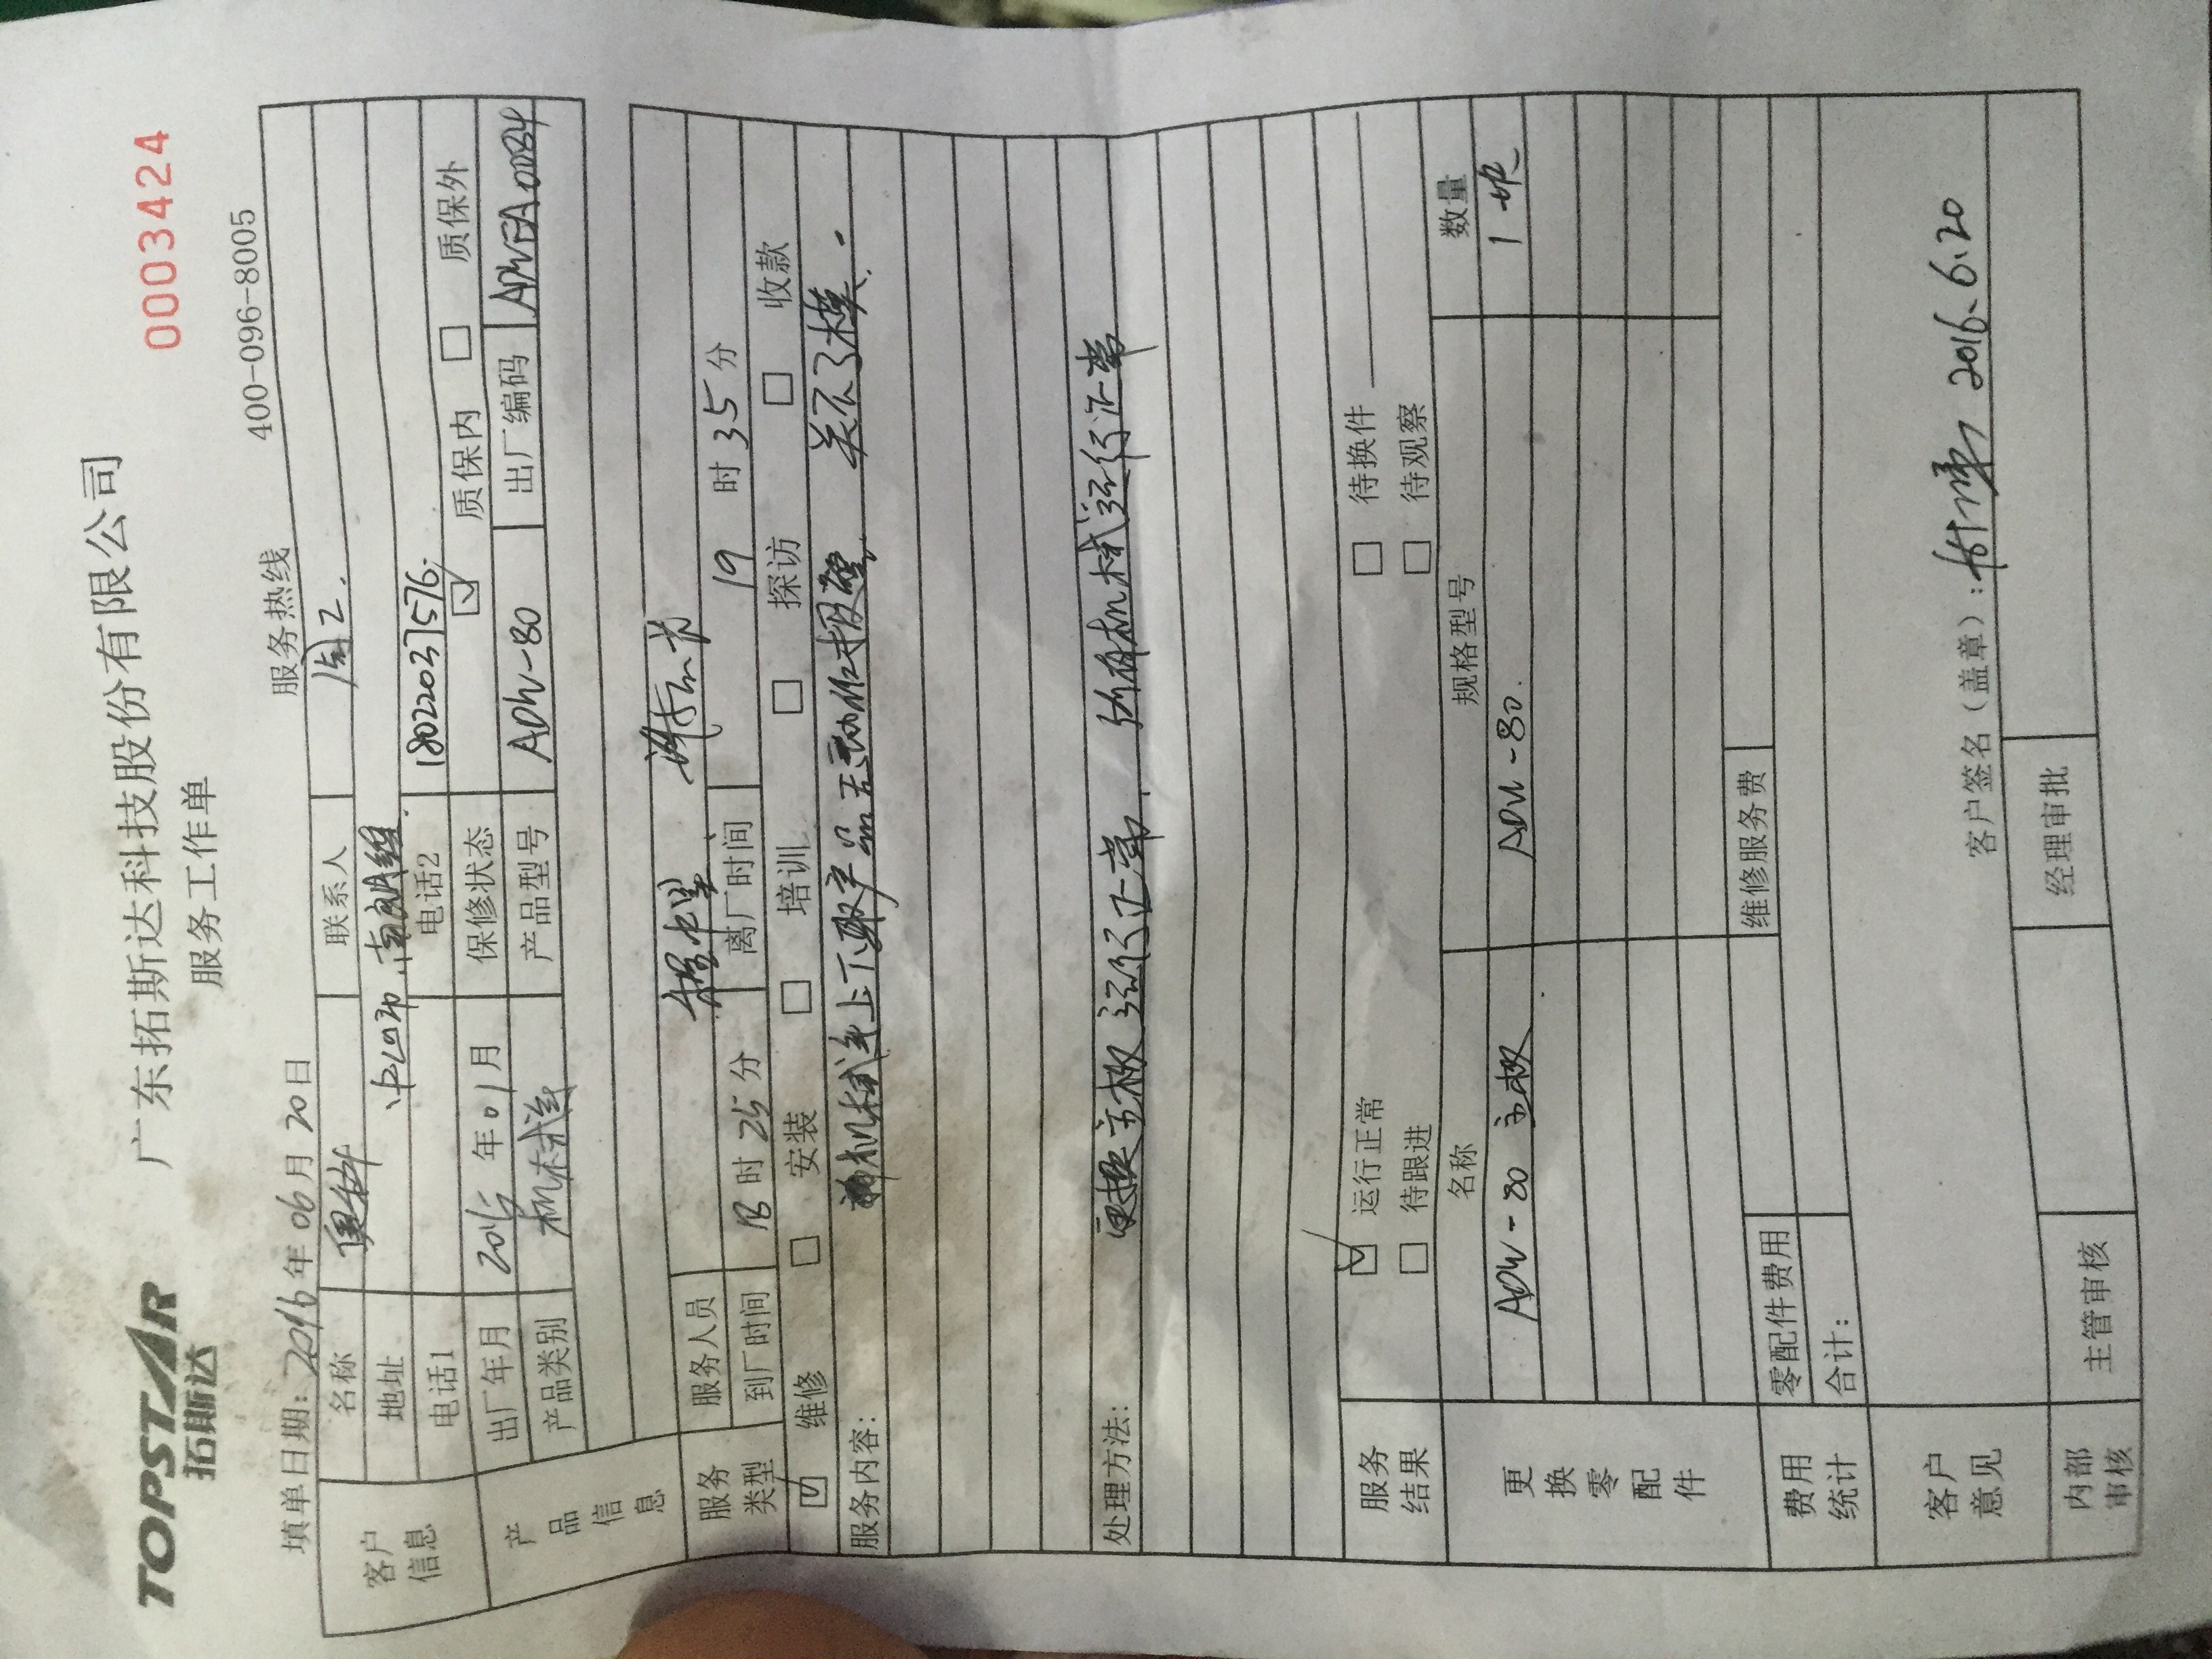 TOPSTAR
拓斯达
广东拓斯达科技股份有限公司
0003424
服务工作单
填单日期：2016年06月20日
服务热线 400-096-8005
客户信息
名称 奥科 联系人
地址 中山市.南朗镇
电话1 电话2 18022037576.
产品信息
出厂年月 2015年01月 保修状态 ☑ 质保内 □ 质保外
产品类别 机械手 产品型号 ADW-80 出厂编码
服务类型
服务人员 程中望
到厂时间 18时25分 离厂时间 19时35分
☑ 维修 □ 安装 □ 培训 □ 探访 □ 收款
服务内容： 机械手上下取产品无动作报警 关不了模.
处理方法： 更换主板运行正常. 所有机械运行正常
服务结果
☑ 运行正常 □ 待换件
□ 待跟进 □ 待观察
更换零配件
名称 规格型号 数量
ADW-80 主板 ADW-80. 1块
费用统计
零配件费用 维修服务费
合计：
客户意见
客户签名（盖章）： 2016.6.20
内部审核 主管审核 经理审批